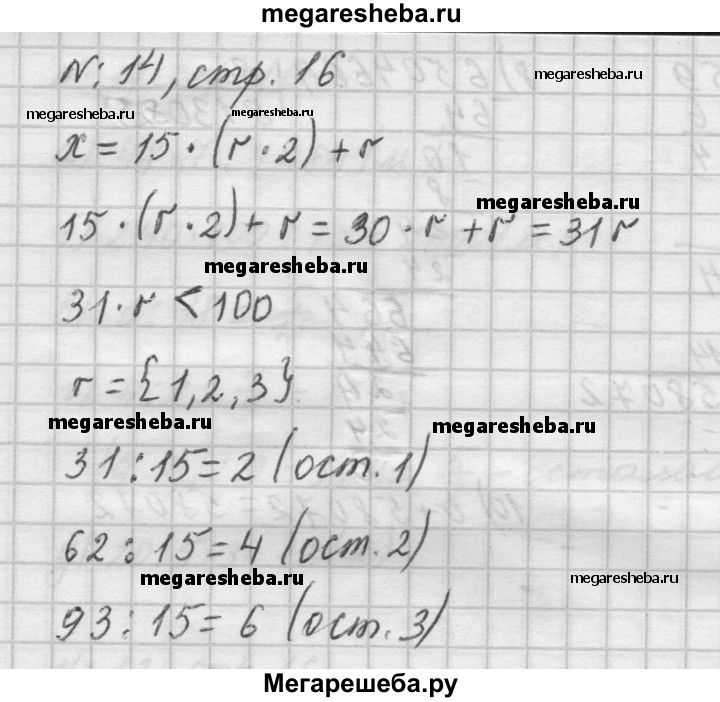 megaresheba.ru
N: 14, стр. 16
megaresheba.ru megaresheba.ru
x = 15 · (r · 2) + r
megaresheba.ru
15 · (r · 2) + r = 30 · r + r = 31 r
megaresheba.ru
31 · r < 100
r = {1, 2, 3}
megaresheba.ru megaresheba.ru
31 : 15 = 2 (ост. 1)
62 : 15 = 4 (ост. 2)
megaresheba.ru megaresheba.ru
93 : 15 = 6 (ост. 3)
megaresheba.ru
Мегарешеба.ру